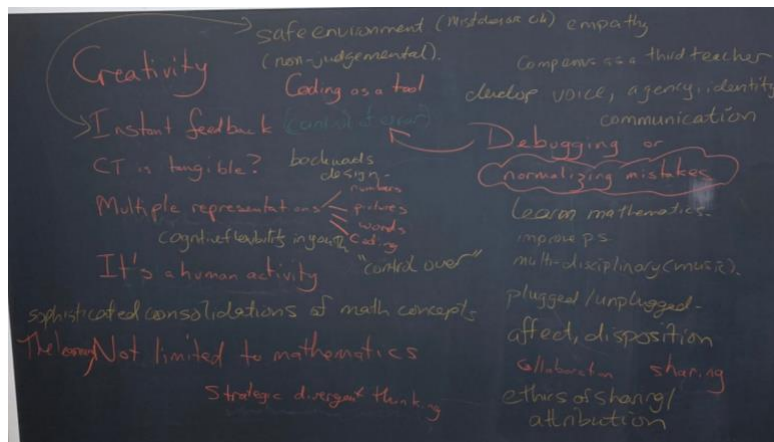 safe environment (mistakes are ok) empathy
(non-judgemental).
Creativity
Coding as a tool
Instant feedback (control of error)
CT is tangible?
backwards
design-
Multiple representations
numbers
pictures
words
coding
cognitive flexibility in
It's a human activity
"control over"
sophisticated consolidations of math concepts
The learning Not limited to mathematics
Strategic divergent thinking
as a third teacher
develop voice, agency, identity
communication
Debugging or
normalizing mistakes
Learn mathematics-
improve ps
multi-disciplinary (music).
plugged/unplugged-
affect, disposition
collaboration sharing
ethics of sharing/
attribution